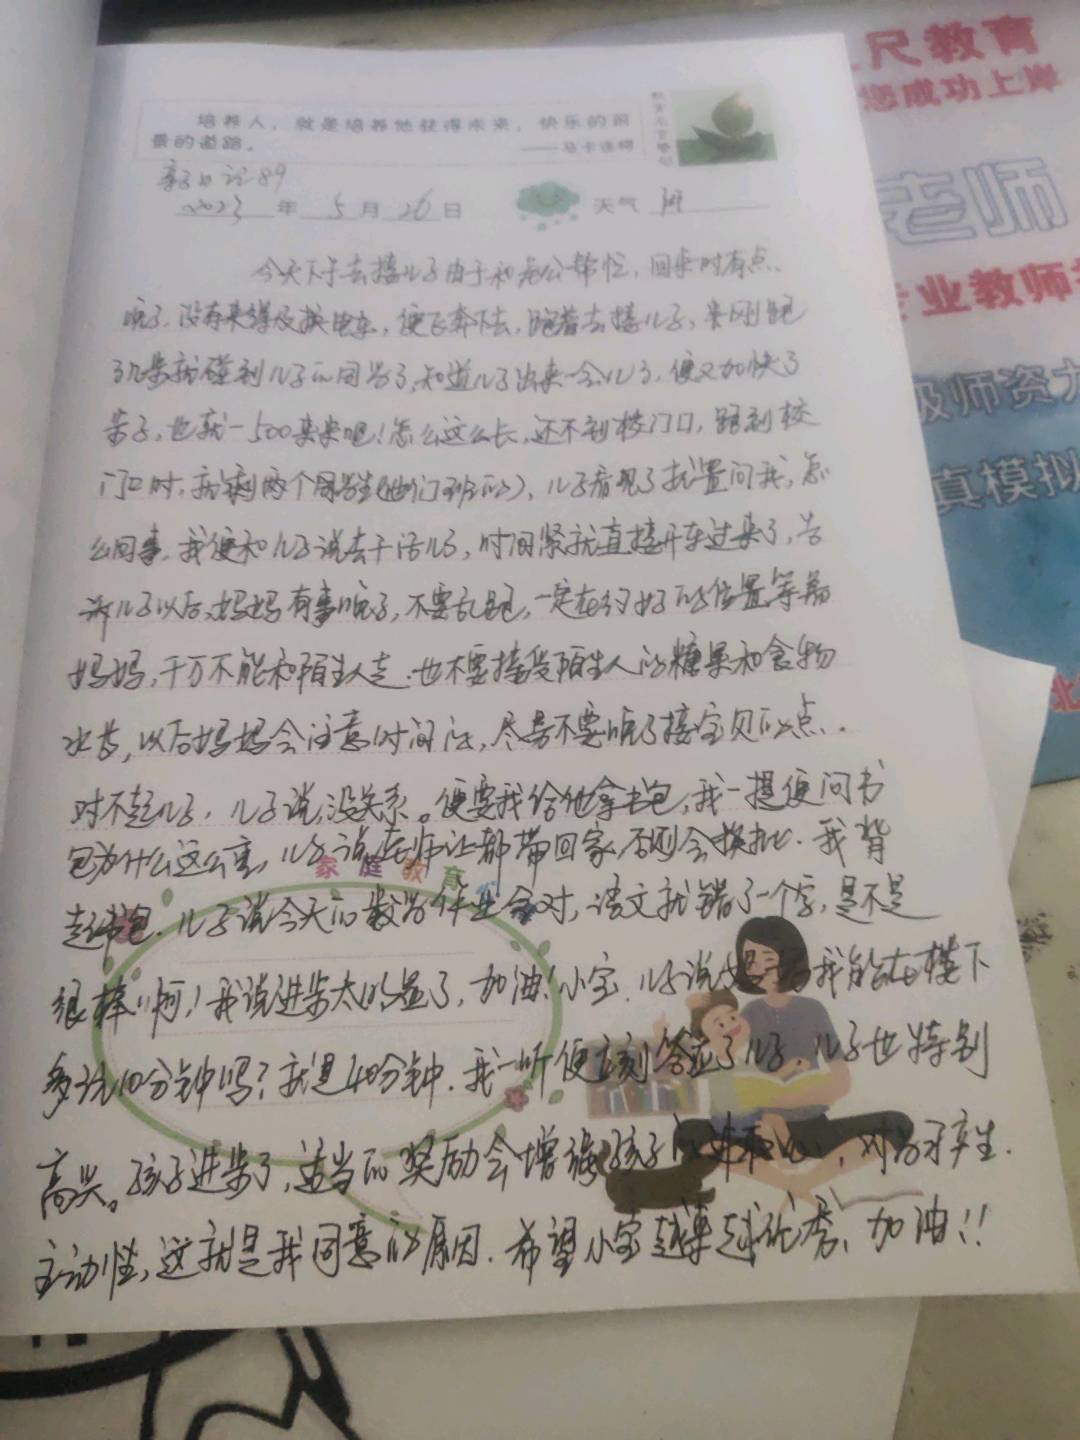 培养人，就是培养他获得未来、快乐的前
景的道路。
——马卡连柯
教育名言警句
亲子日记89
2023 年 5 月 26 日 天气 阴
今天下午去接儿子由于和老公帮忙，回来时有点
晚了，没有来得及换电车，便飞奔下去，跑着去接儿子，来刚跑
了几步就碰到儿子的同学了，知道儿子出来一会儿了，便又加快了
步子，也就一500来米吧！怎么这么长，还不到校门口，跑到校
门口时，就剩两个同学(他们班的)，儿子看见了就置问我，怎
么回事，我便和儿子说去干活儿了，时间紧就直接开车过来了，告
诉儿子以后妈妈有事晚了，不要乱跑，一定在约好的位置等着
妈妈，千万不能和陌生人走，也不要接受陌生人的糖果和食物
水等，以后妈妈会注意时间的，尽量不要晚了接宝贝的点.
对不起儿子，儿子说没关系。便要我给他拿书包，我一提便问书
包为什么这么重，儿子说老师让都带回家，否则会挨批. 我背
起书包. 儿子说今天的数学作业全对，语文就错了一个字，是不是
很棒啊！我说进步太明显了，加油！小宝. 儿子说妈妈我能在楼下
多玩10分钟吗？就是40分钟. 我一听便立刻答应了儿子，儿子也特别
高兴。孩子进步了，适当的奖励会增强孩子的进取心，对学习产生
主动性，这就是我同意的原因. 希望小宝越来越优秀、加油！！
家庭教育
尺教育
您成功上岸
老师
专业教师
级师资力
真模拟
北